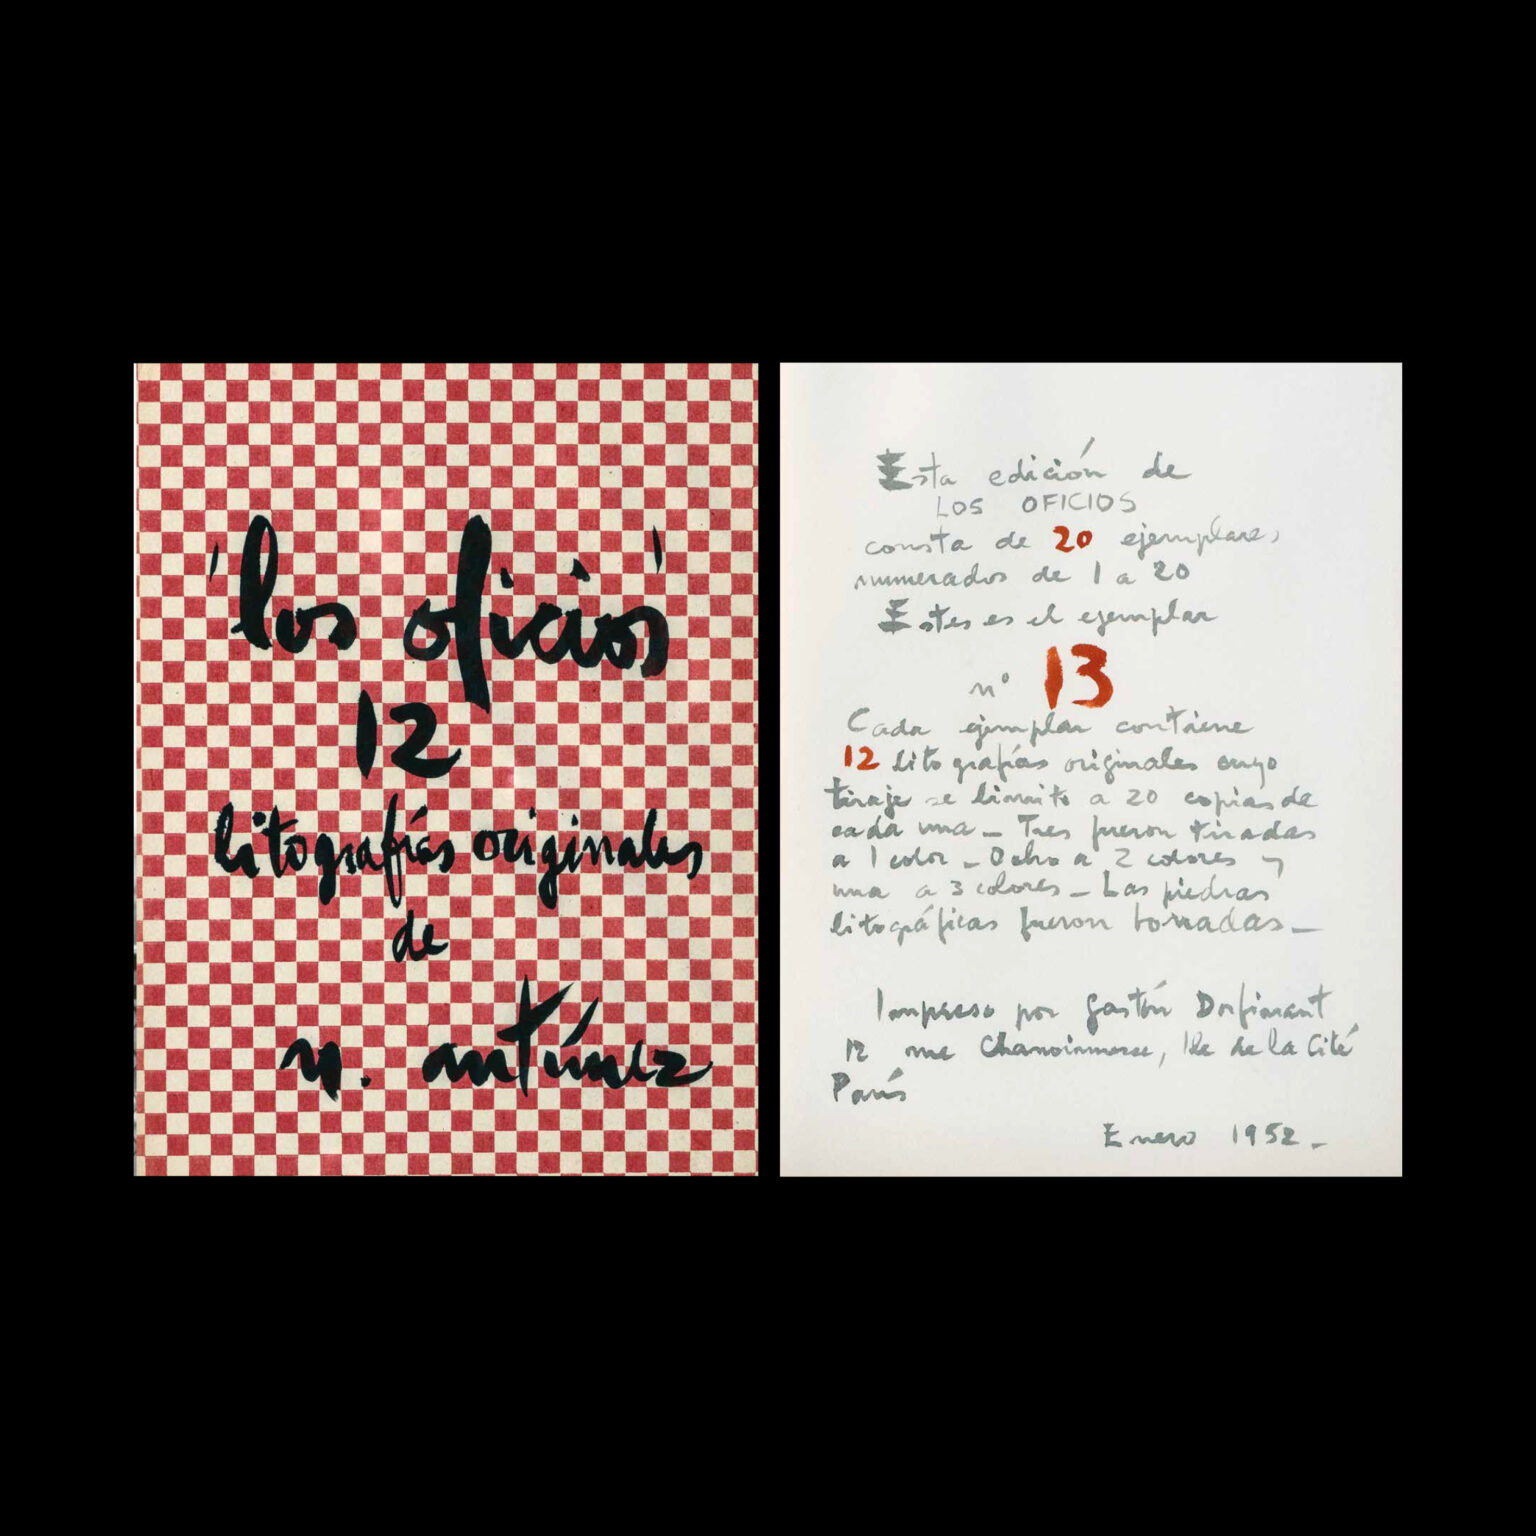 'los oficios'
12
litografías originales
de
n. antúnez
Esta edición de
LOS OFICIOS
consta de 20 ejemplares,
numerados de 1 a 20
Estes es el ejemplar
nº 13
Cada ejemplar contiene
12 litografías originales cuyo
tiraje se limito a 20 copias de
cada una - Tres fueron tiradas
a 1 color - Ocho a 2 colores y
una a 3 colores - Las piedras
litográficas fueron borradas -
Impreso por Gastón Dorfinant
12 rue Chanoinesse, Ile de la Cité
París
Enero 1952 -